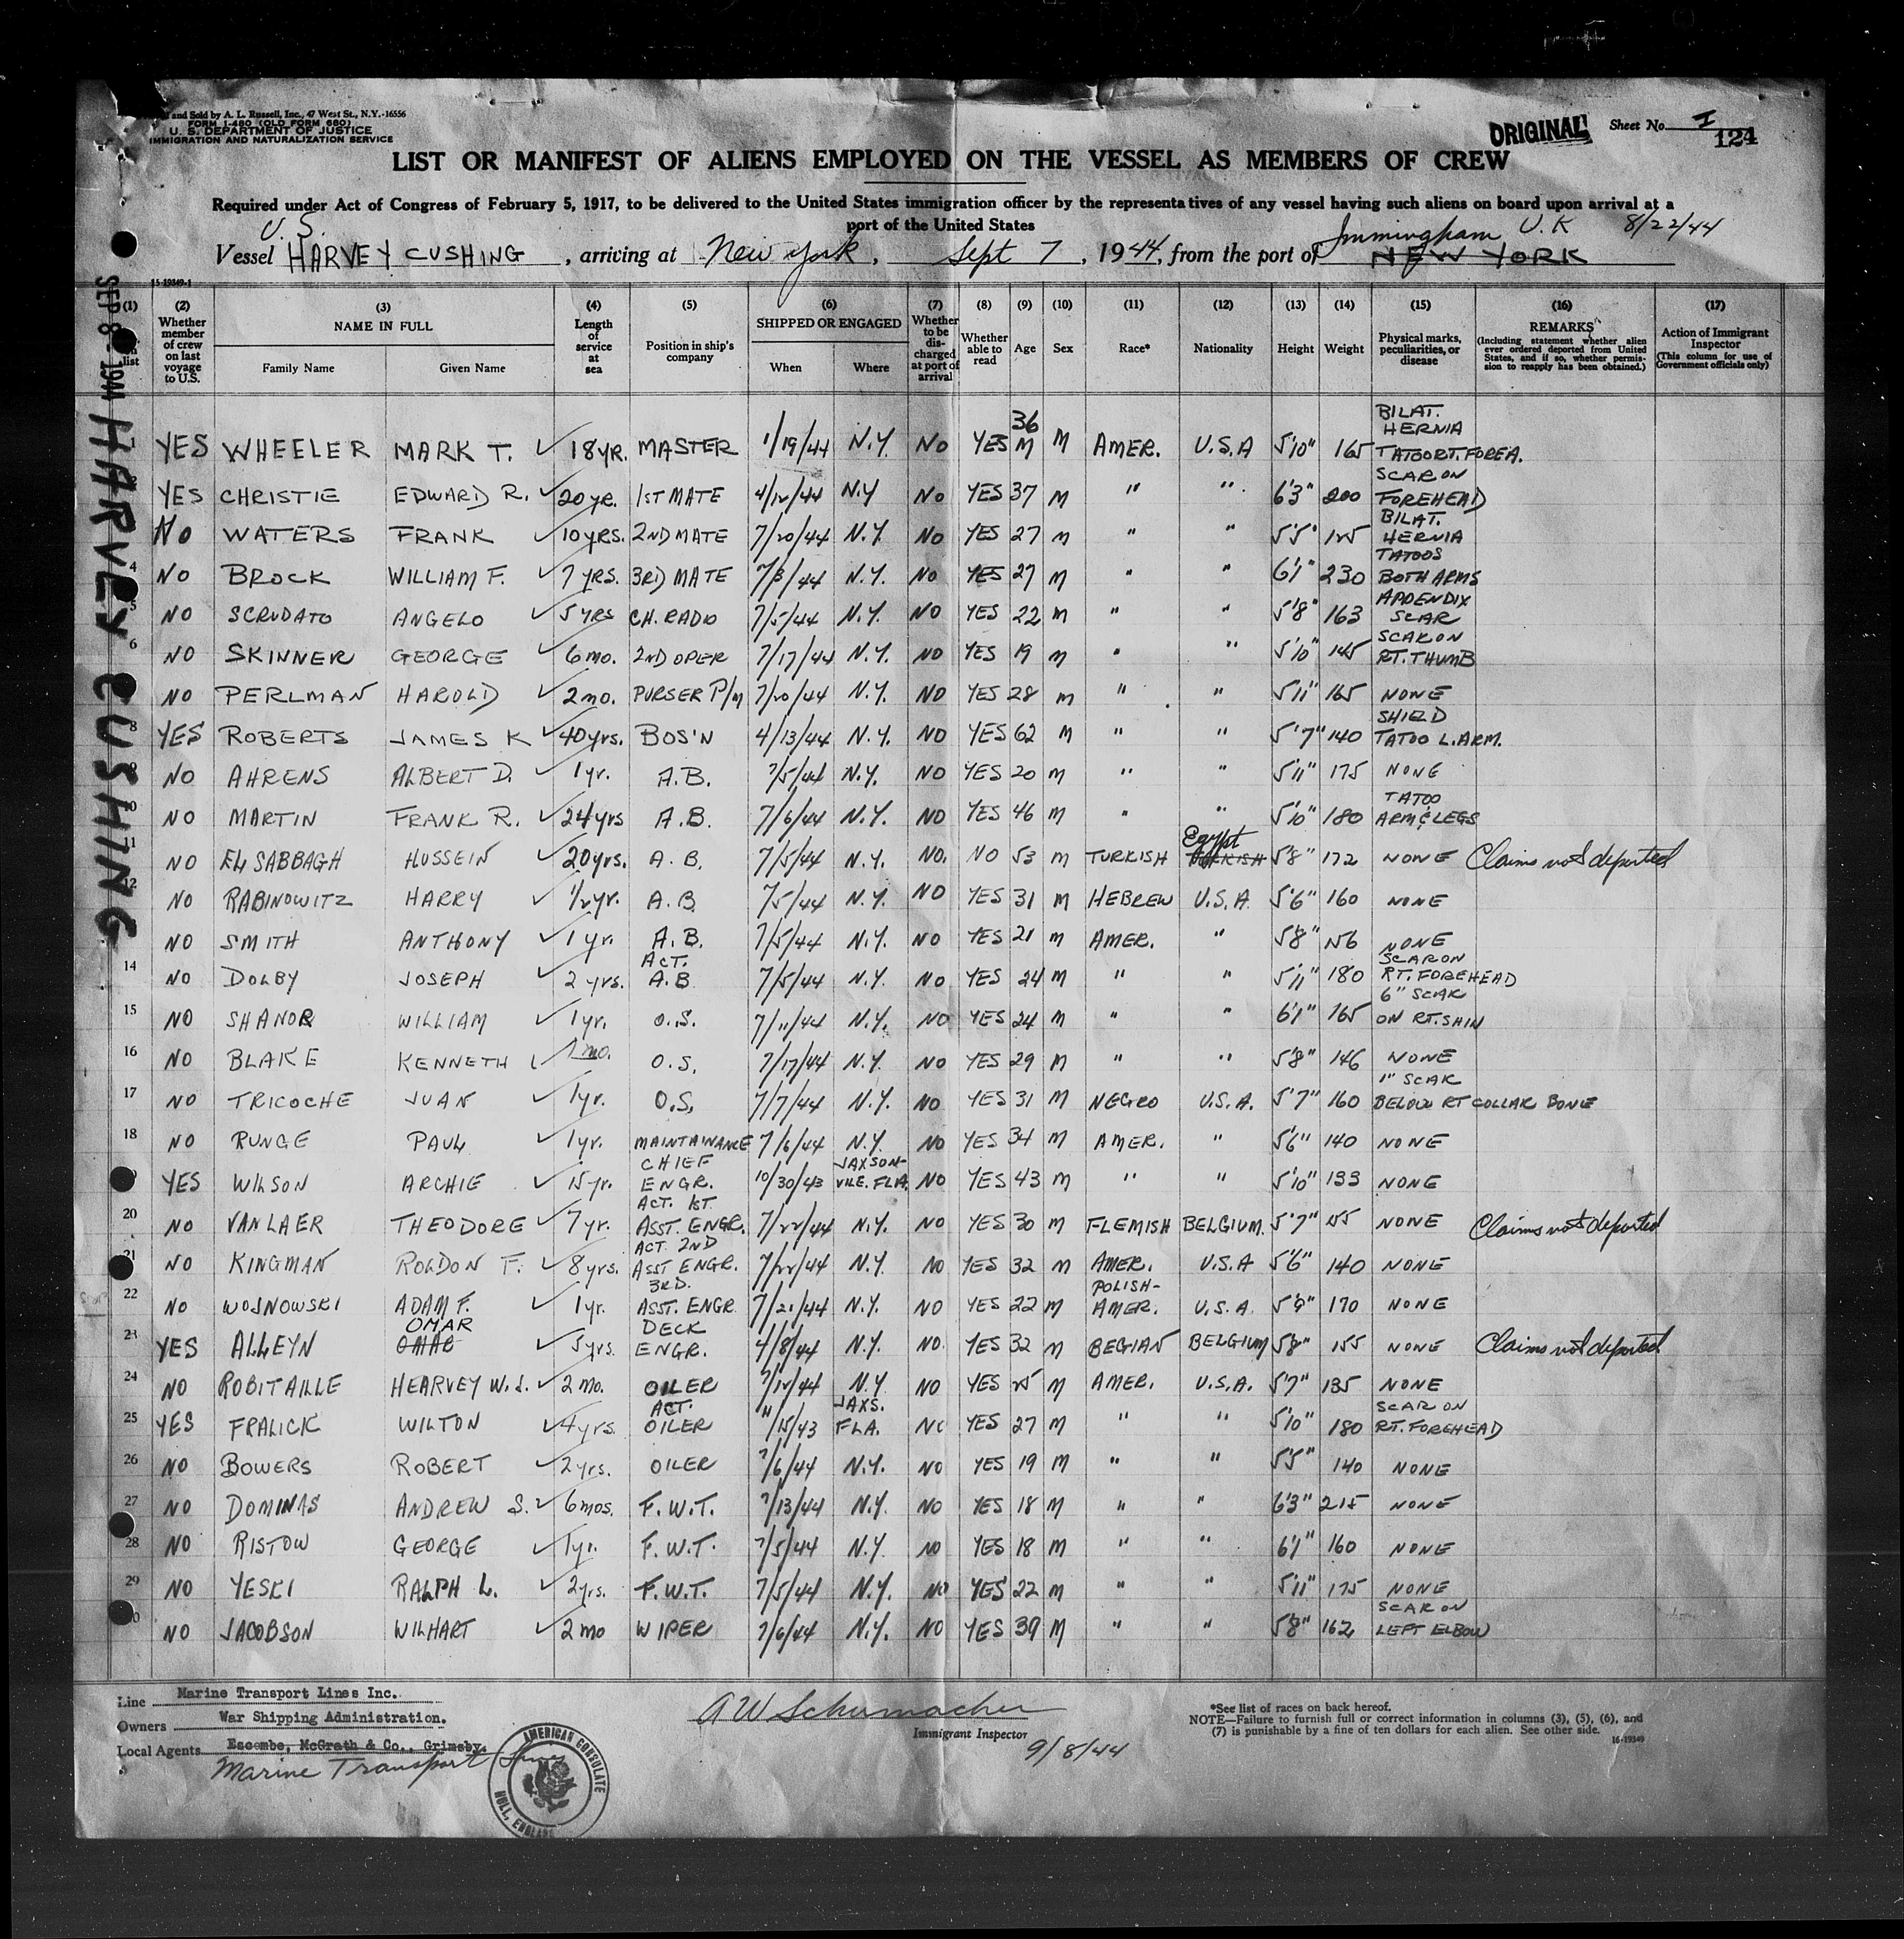 and Sold by A. L. Russell, Inc., 47 West St., N.Y.-16556
FORM I-480 (OLD FORM 680)
U. S. DEPARTMENT OF JUSTICE
IMMIGRATION AND NATURALIZATION SERVICE
ORIGINAL
Sheet No. I
124
LIST OR MANIFEST OF ALIENS EMPLOYED ON THE VESSEL AS MEMBERS OF CREW
Required under Act of Congress of February 5, 1917, to be delivered to the United States immigration officer by the representatives of any vessel having such aliens on board upon arrival at a
port of the United States
U.S. Immingham U.K 8/22/44
Vessel HARVEY CUSHING, arriving at New York, Sept 7, 1944, from the port of NEW YORK
15-19849-1
SEP 8 - 1944 HARVEY CUSHING
(1) list
(2) Whether member of crew on last voyage to U.S.
(3) NAME IN FULL
Family Name
Given Name
(4) Length of service at sea
(5) Position in ship's company
(6) SHIPPED OR ENGAGED
When
Where
(7) Whether to be discharged at port of arrival
(8) Whether able to read
(9) Age
(10) Sex
(11) Race*
(12) Nationality
(13) Height
(14) Weight
(15) Physical marks, peculiarities, or disease
(16) REMARKS (Including statement whether alien ever ordered deported from United States, and if so, whether permission to reapply has been obtained.)
(17) Action of Immigrant Inspector (This column for use of Government officials only)
YES WHEELER MARK T. 18YR. MASTER 1/19/44 N.Y. NO YES 36 M M AMER. U.S.A 5'10" 165 BILAT. HERNIA TATOO RT. FOREA.
YES CHRISTIE EDWARD R. 20YR. 1ST MATE 4/12/44 N.Y NO YES 37 M " " 6'3" 200 SCAR ON FOREHEAD
NO WATERS FRANK 10YRS. 2ND MATE 7/20/44 N.Y. NO YES 27 M " " 5'5" 125 BILAT. HERNIA
4 NO BROCK WILLIAM F. 7 YRS. 3RD MATE 7/8/44 N.Y. NO YES 27 M " " 6'1" 230 TATOOS BOTH ARMS
5 NO SCRUDATO ANGELO 5 YRS CH. RADIO 7/5/44 N.Y. NO YES 22 M " " 5'8" 163 APPENDIX SCAR
6 NO SKINNER GEORGE 6 mo. 2ND OPER 7/17/44 N.Y. NO YES 19 M " " 5'10" 145 SCAR ON RT. THUMB
NO PERLMAN HAROLD 2 mo. PURSER P/M 7/20/44 N.Y. NO YES 28 M " " 5'11" 165 NONE
8 YES ROBERTS JAMES K 40yrs. BOS'N 4/13/44 N.Y. NO YES 62 M " " 5'7" 140 SHIELD TATOO L. ARM.
9 NO AHRENS ALBERT D. 1yr. A.B. 7/5/44 N.Y. NO YES 20 M " " 5'11" 175 NONE
10 NO MARTIN FRANK R. 24yrs A.B. 7/6/44 N.Y. NO YES 46 M " " 5'10" 180 TATOO ARM & LEGS
11 NO EL SABBAGH HUSSEIN 20yrs. A.B. 7/5/44 N.Y. NO. NO 53 M TURKISH Egypt TURKISH 5'8" 172 NONE Claims not deported
12 NO RABINOWITZ HARRY 1/2yr. A.B 7/5/44 N.Y. NO YES 31 M HEBREW U.S.A. 5'6" 160 NONE
NO SMITH ANTHONY 1 yr. A.B. 7/5/44 N.Y. NO YES 21 M AMER. " 5'8" 156 NONE
14 NO DOLBY JOSEPH 2 yrs. ACT. A.B 7/5/44 N.Y. NO YES 24 M " " 5'11" 180 SCAR ON RT. FOREHEAD
15 NO SHANOR WILLIAM 1yr. O.S. 7/11/44 N.Y. NO YES 24 M " " 6'1" 165 6" SCAR ON RT. SHIN
16 NO BLAKE KENNETH 1 mo. O.S. 7/17/44 N.Y. NO YES 29 M " " 5'8" 146 NONE
17 NO TRICOCHE JUAN 1yr. O.S. 7/7/44 N.Y. NO YES 31 M NEGRO U.S.A. 5'7" 160 1" SCAR BELOW RT COLLAR BONE
18 NO RUNGE PAUL 1yr. MAINTAINANCE 7/6/44 N.Y. NO YES 34 M AMER. " 5'6" 140 NONE
YES WILSON ARCHIE 15yr. CHIEF ENGR. 10/30/43 JAXSON-VILE. FLA. NO YES 43 M " " 5'10" 133 NONE
20 NO VAN LAER THEODORE 7 yr. ACT. 1ST. ASST. ENGR. 7/22/44 N.Y. NO YES 30 M FLEMISH BELGIUM. 5'7" 155 NONE Claims not deported
21 NO KINGMAN ROLDON F. 8yrs. ACT 2ND ASST ENGR. 7/22/44 N.Y. NO YES 32 M AMER. U.S.A 5'6" 140 NONE
22 NO WOJNOWSKI ADAM F. 1yr. 3RD. ASST. ENGR. 7/21/44 N.Y. NO YES 22 M POLISH-AMER. U.S.A. 5'9" 170 NONE
23 YES ALLEYN OMAR OMAR 5yrs. DECK ENGR. 4/8/44 N.Y. NO. YES 32 M BEGIAN BELGIUM 5'8" 155 NONE Claims not deported
24 NO ROBITAILLE HEARVEY W.J. 2 mo. OILER 7/12/44 N.Y NO YES 25 M AMER. U.S.A. 5'7" 135 NONE
25 YES FRALICK WILTON 4yrs. ACT. OILER 11/15/43 JAXS. FLA. NO YES 27 M " " 5'10" 180 SCAR ON RT. FOREHEAD
26 NO BOWERS ROBERT 2yrs. OILER 7/6/44 N.Y. NO YES 19 M " " 5'5" 140 NONE
27 NO DOMINAS ANDREW S. 6mos. F.W.T. 7/13/44 N.Y. NO YES 18 M " " 6'3" 215 NONE
28 NO RISTOW GEORGE 1yr. F.W.T. 7/5/44 N.Y. NO YES 18 M " " 6'1" 160 NONE
29 NO YESKI RALPH L. 2yrs. F.W.T. 7/5/44 N.Y. NO YES 22 M " " 5'11" 175 NONE
NO JACOBSON WILHART 2 mo WIPER 7/6/44 N.Y. NO YES 39 M " " 5'8" 162 SCAR ON LEFT ELBOW
Line Marine Transport Lines Inc.
Owners War Shipping Administration.
Local Agents Escombe, McGrath & Co., Grimsby.
Marine Transport Lines
AMERICAN CONSULATE HULL, ENGLAND
A W Schumacher
Immigrant Inspector
9/8/44
*See list of races on back hereof.
NOTE—Failure to furnish full or correct information in columns (3), (5), (6), and
(7) is punishable by a fine of ten dollars for each alien. See other side.
16-19849